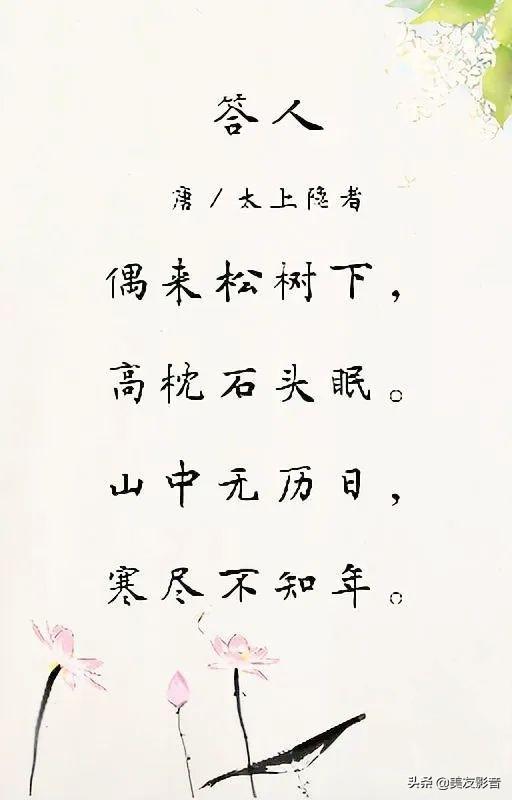 答人
唐/太上隐者
偶来松树下，
高枕石头眠。
山中无历日，
寒尽不知年。
头条 @美友影音